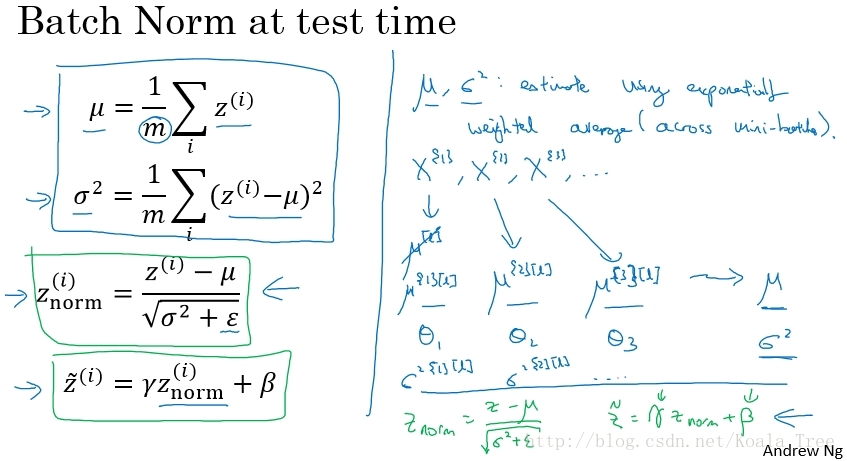 Batch Norm at test time
μ = 1/m ∑_i z^(i)
σ² = 1/m ∑_i (z^(i)−μ)²
z_norm^(i) = (z^(i) − μ)/√(σ² + ε)
z̃^(i) = γz_norm^(i) + β
μ, σ² : estimate using exponentially
weighted average (across mini-batches).
X^{1}, X^{2}, X^{3}, ...
μ^[l]
μ^{1}[l] μ^{2}[l] μ^{3}[l] → μ
θ₁ θ₂ θ₃ σ²
σ²^{1}[l] σ²^{2}[l] ....
z_norm = (z − μ)/√(σ²+ε) z̃ = γ z_norm + β
http://blog.csdn.net/Koala_Tree
Andrew Ng